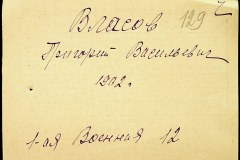 Власов 129
Григорий Васильевич
1902 г.
1-ая Военная 12